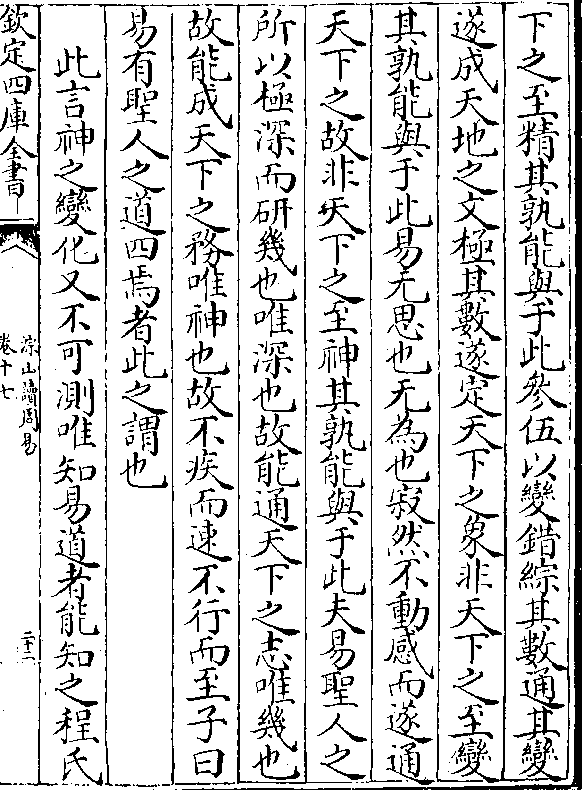 下之至精其孰能與于此參伍以變錯綜其數通其變
遂成天地之文極其數遂定天下之象非天下之至變
其孰能與于此易无思也无為也寂然不動感而遂通
天下之故非天下之至神其孰能與于此夫易聖人之
所以極深而研幾也唯深也故能通天下之志唯幾也
故能成天下之務唯神也故不疾而速不行而至子曰
易有聖人之道四焉者此之謂也
此言神之變化又不可測唯知易道者能知之程氏
欽定四庫全書
涂山讀周易
卷十七
二十二